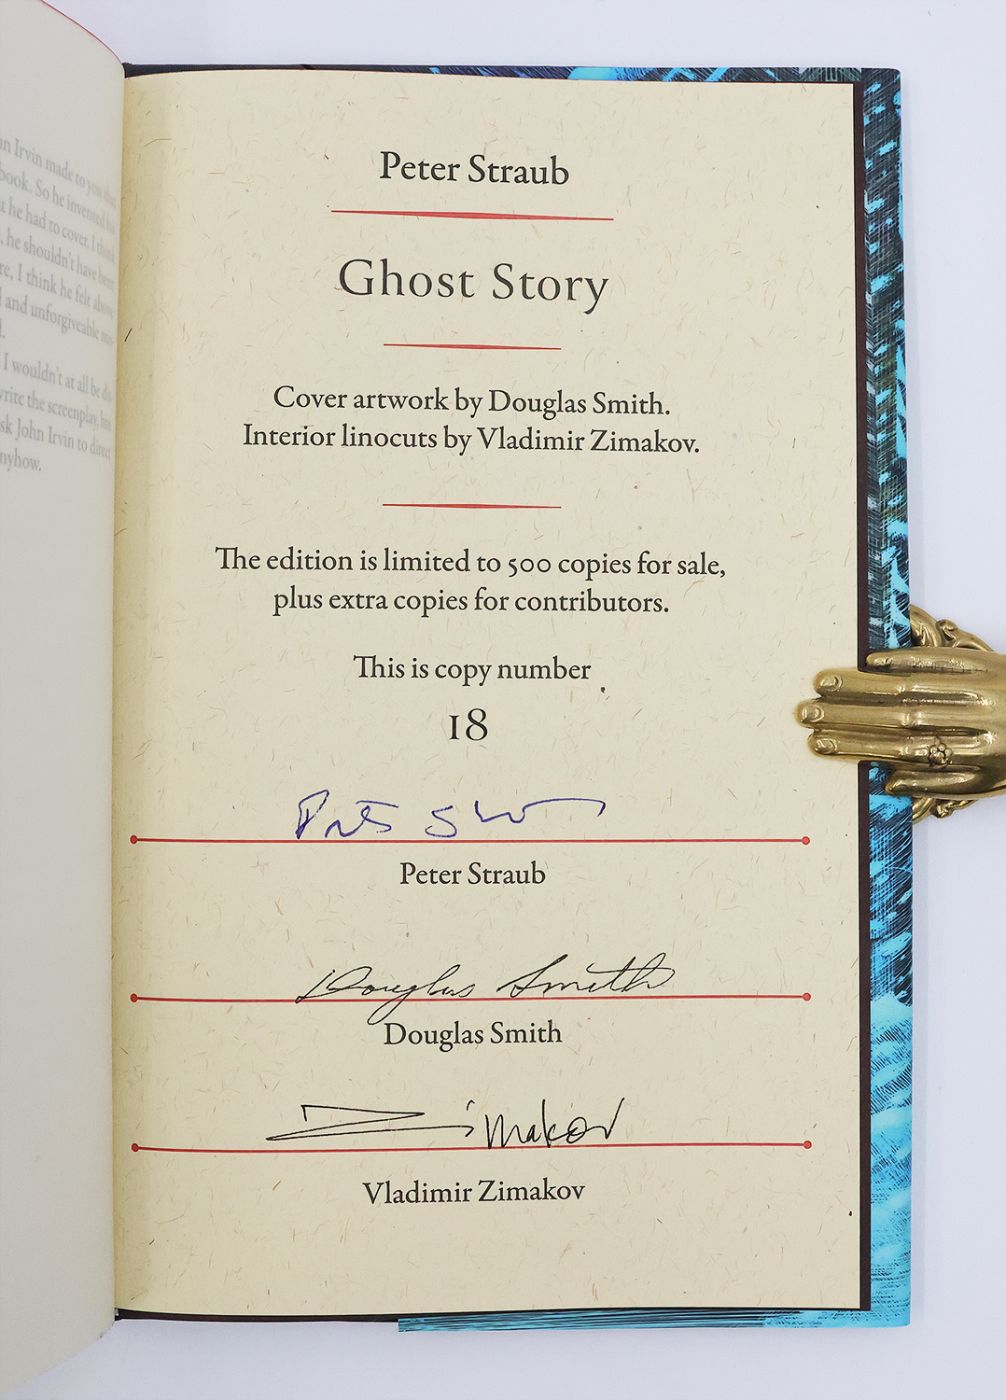 n Irvin made to you
book. So he invented
t he had to cover. I think
, he shouldn't have been
re, I think he felt above
l and unforgiveable
l.
I wouldn't at all be
write the screenplay, but
sk John Irvin to direct
nyhow.
Peter Straub
Ghost Story
Cover artwork by Douglas Smith.
Interior linocuts by Vladimir Zimakov.
The edition is limited to 500 copies for sale,
plus extra copies for contributors.
This is copy number
18
Peter Straub
Douglas Smith
Douglas Smith
Zimakov
Vladimir Zimakov